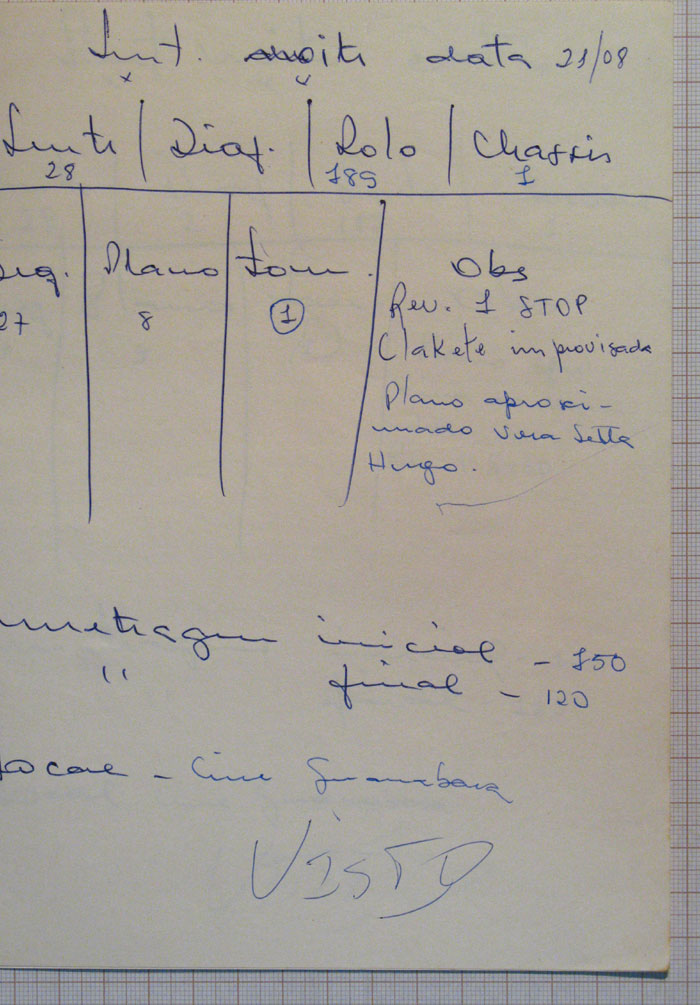 Int. noite data 21/08
x v
Lente | Diaf. | Rolo | Chassis
28 189 1
Seq. Plano Tom. Obs
27 8 1 Rev. 1 STOP
Clakete improvisada
Plano aproxi-
mado Vera Setta
Hugo.
metragem inicial - 150
" final - 120
Local - Cine Guanabara
VISTO